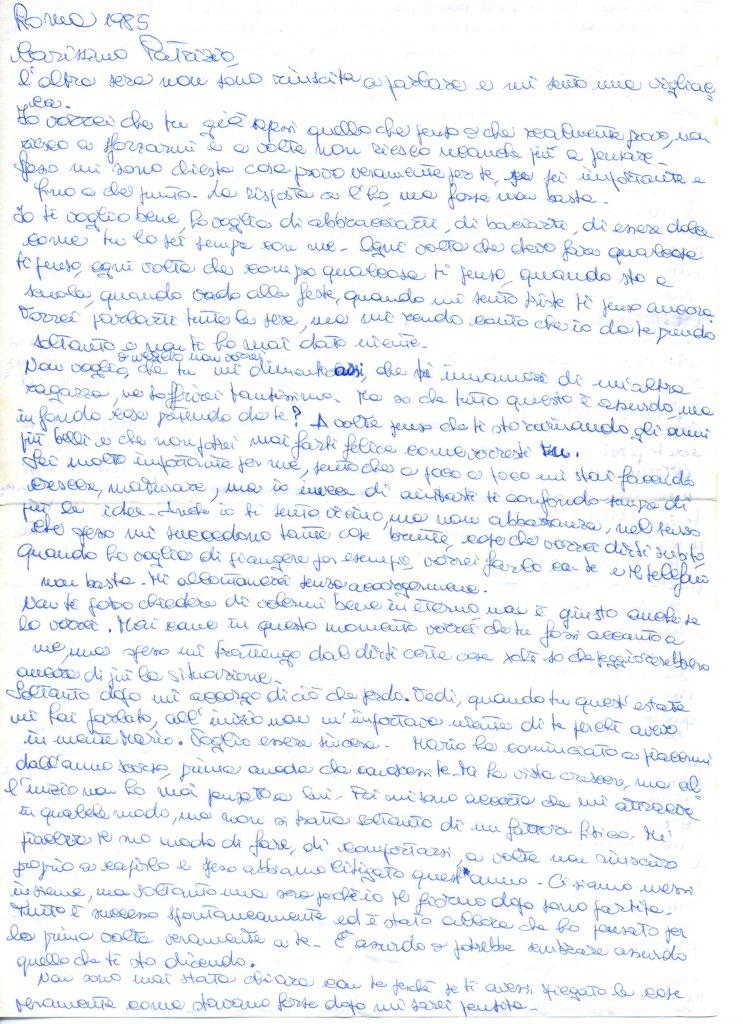 Roma 1985
Carissimo Patrizio,
l'altra sera non sono riuscita a parlare e mi sento una vigliac=
ca.
Io vorrei che tu già sapessi quello che penso e che realmente provo, non
riesco a sforzarmi e a volte non riesco neanche più a pensare.
Spesso mi sono chiesta cosa provo veramente per te, se sei importante e
fino a che punto. La risposta ce l'ho, ma forse non basta.
Io ti voglio bene, ho voglia di abbracciarti, di baciarti, di essere dolce
come tu lo sei sempre con me. Ogni volta che devo fare qualcosa
ti penso, ogni volta che compro qualcosa ti penso, quando sto a
scuola, quando vado alle feste, quando mi sento triste ti penso ancora.
Vorrei parlarti tutte le sere, ma mi rendo conto che io da te prendo
soltanto e non ti ho mai dato niente.
Non voglio, o meglio non vorrei che tu mi dimenticassi che ti innamori di un'altra
ragazza, ne soffrirei tantissimo. Ma so che tutto questo è assurdo, ma
in fondo cosa pretendo da te? A volte penso che ti sto rovinando gli anni
più belli e che non potrei mai farti felice come vorresti tu.
Sei molto importante per me, sento che a poco a poco mi stai facendo
crescere, maturare, ma io invece di aiutarti ti confondo sempre di
più le idee. Anche io ti sento vicino, ma non abbastanza, nel senso
che spesso mi succedono tante cose brutte, cose che vorrei dirti subito,
quando ho voglia di piangere per esempio, vorrei farlo con te e il telefono
non basta. Mi allontanerei senza accorgermene.
Non te posso chiedere di volermi bene in eterno non è giusto anche se
lo vorrei. Mai come in questo momento vorrei che tu fossi accanto a
me, ma spesso mi trattengo dal dirti certe cose so che peggiorerebbero
ancora di più la situazione.
Soltanto dopo mi accorgo di ciò che perdo. Vedi, quando tu quest'estate
mi hai parlato, all'inizio non m'importava niente di te perchè avevo
in mente Mario. Voglio essere sincera. Mario ha cominciato a piacermi
dall'anno scorso, prima ancora che conoscessi te. Mi ha vista crescere, ma al=
l'inizio non ho mai pensato a lui. Poi mi sono accorta che mi attraeva
in qualche modo, ma non si tratta soltanto di un fattore fisico. Mi
piaceva il suo modo di fare, di comportarsi, a volte non riuscivo
proprio a capirlo e spesso abbiamo litigato quest'anno. Ci siamo messi
insieme, ma soltanto una sera perchè io il giorno dopo sono partita.
Tutto è successo spontaneamente ed è stato allora che ho pensato per
la prima volta veramente a te. È assurdo o potrebbe sembrare assurdo
quello che ti sto dicendo.
Non sono mai stata chiara con te perchè se ti avessi spiegato le cose
veramente come stavano forse dopo mi sarei pentita.